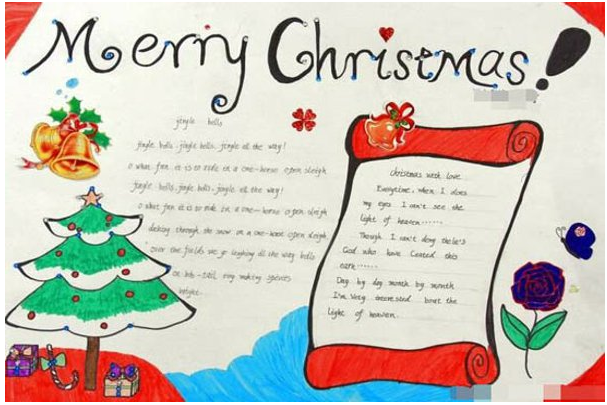 Merry Christmas!
jingle bells
jingle bells, jingle bells, jingle all the way!
O what fun it is to ride in a one-horse open sleigh
jingle bells, jingle bells, jingle all the way!
O what fun it is to ride in a one-horse open sleigh
dashing through the snow in a one-horse open sleigh
over the fields we go laughing all the way bells
on bob-tail ring making spirits
bright.
Christmas with love
Everytime, when I does
my eyes I can't see the
light of heaven......
Though I can't dong the
God who have this
......
Day by day month by month
I'm very interested the
light of heaven.